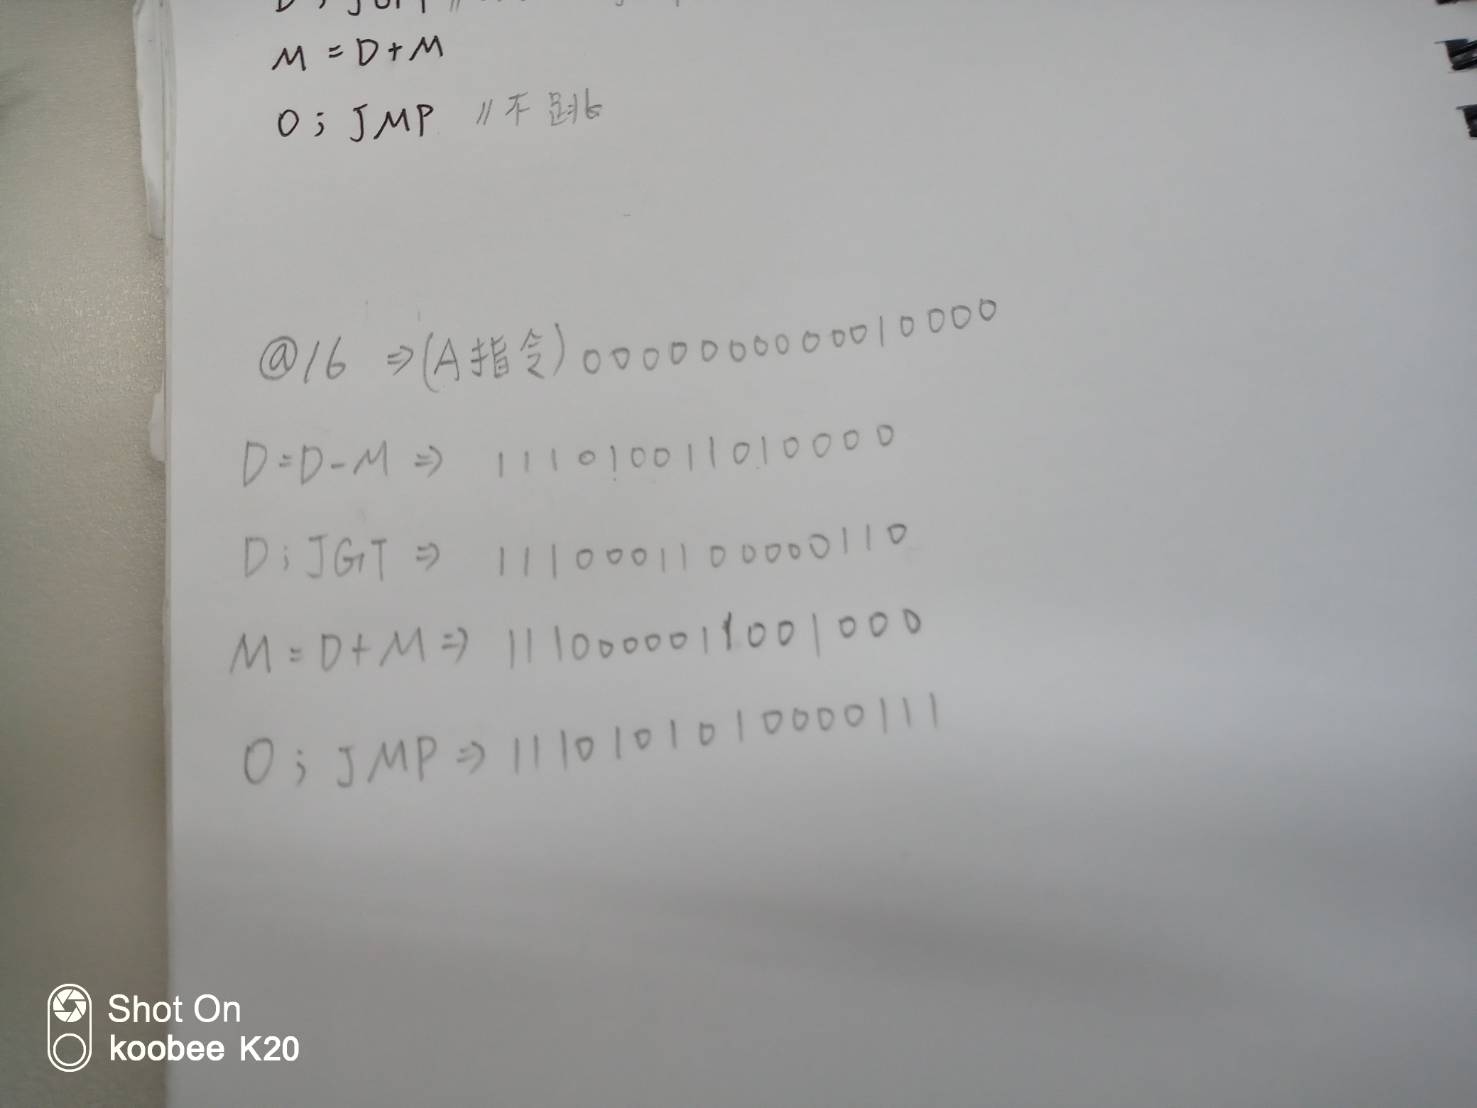 M = D + M
0 ; JMP // 不跳
@16 ⇒ (A指令) 0000000000010000
D = D - M ⇒ 111010011010000
D ; JGT ⇒ 1110001100000110
M = D + M ⇒ 1110000011001000
0 ; JMP ⇒ 1110101010000111
Shot On
koobee K20